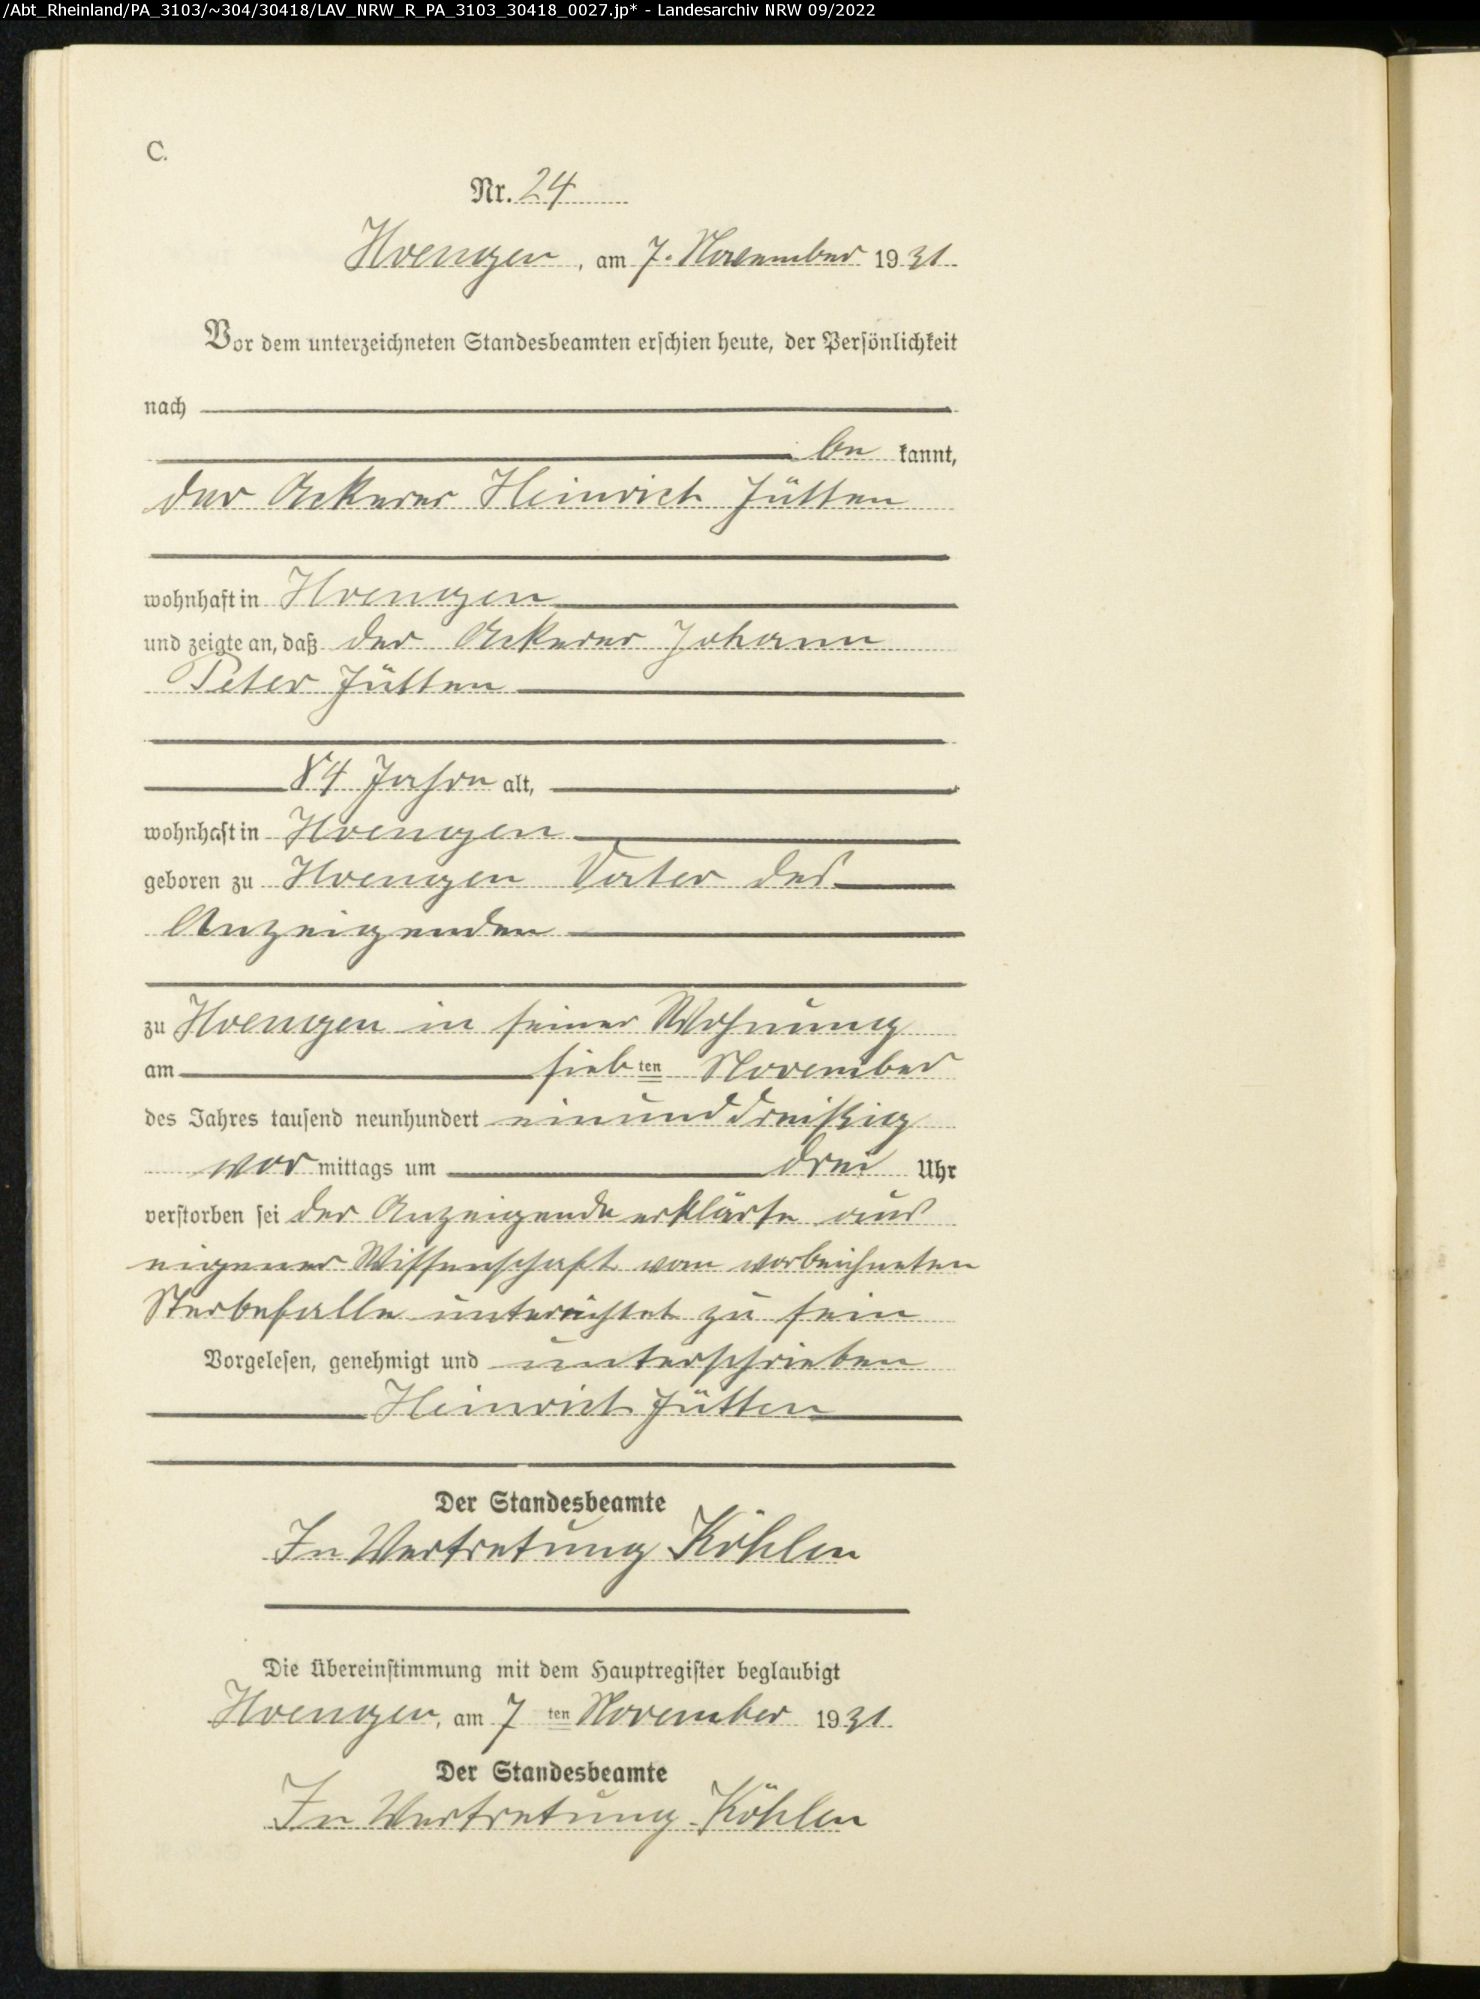 /Abt_Rheinland/PA_3103/~304/30418/LAV_NRW_R_PA_3103_30418_0027.jp* - Landesarchiv NRW 09/2022
C.
Nr. 24
Hoengen, am 7. November 1931.
Vor dem unterzeichneten Standesbeamten erschien heute, der Persönlichkeit
nach
be kannt,
der Ackerer Heinrich Jütten
wohnhaft in Hoengen
und zeigte an, daß der Ackerer Johann
Peter Jütten
84 Jahre alt,
wohnhaft in Hoengen
geboren zu Hoengen Vater des
Anzeigenden
zu Hoengen in seiner Wohnung
am siebten November
des Jahres tausend neunhundert einunddreißig
vor mittags um drei Uhr
verstorben sei der Anzeigende erklärte aus
eigener Wissenschaft vom vorbeichneten
Sterbefalle unterrichtet zu sein
Vorgelesen, genehmigt und unterschrieben
Heinrich Jütten
Der Standesbeamte
In Vertretung Köhlen
Die Übereinstimmung mit dem Hauptregister beglaubigt
Hoengen, am 7 ten November 1931.
Der Standesbeamte
In Vertretung Köhlen